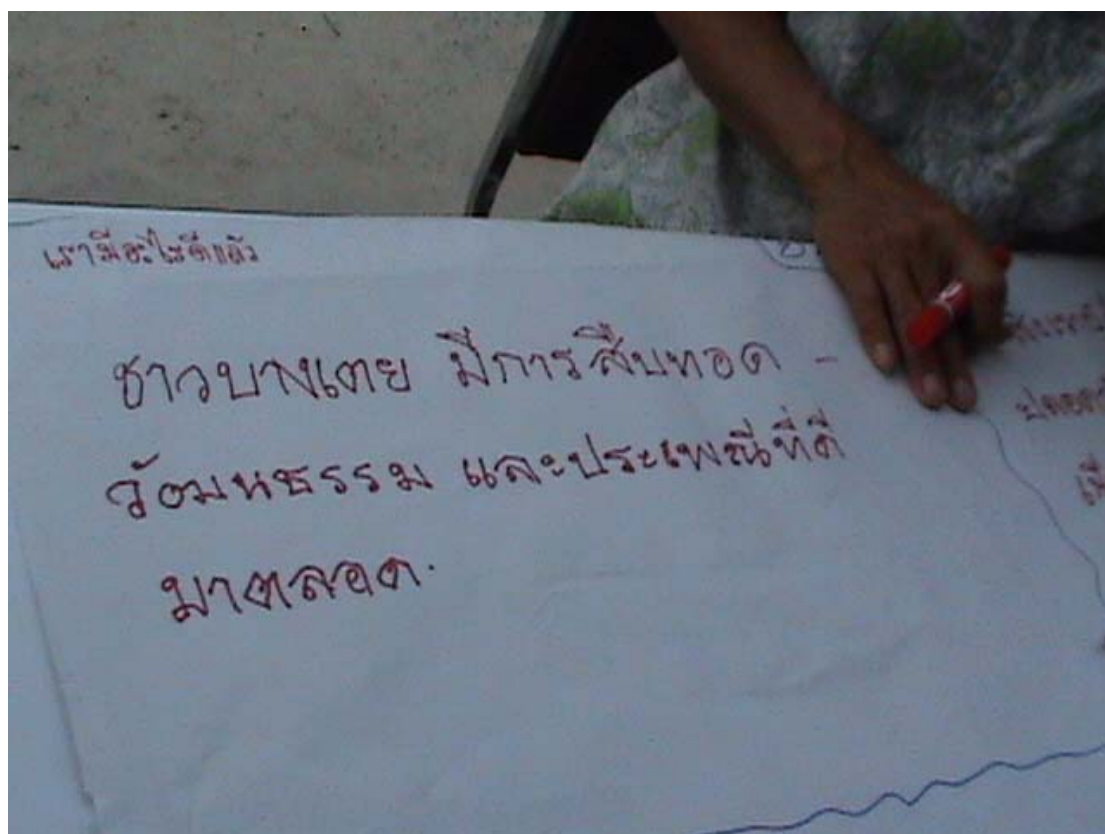 เรามีอะไรดีแล้ว
ชาวบางเตย มีการสืบทอด -
วัฒนธรรม และประเพณีที่ดี
มาตลอด.